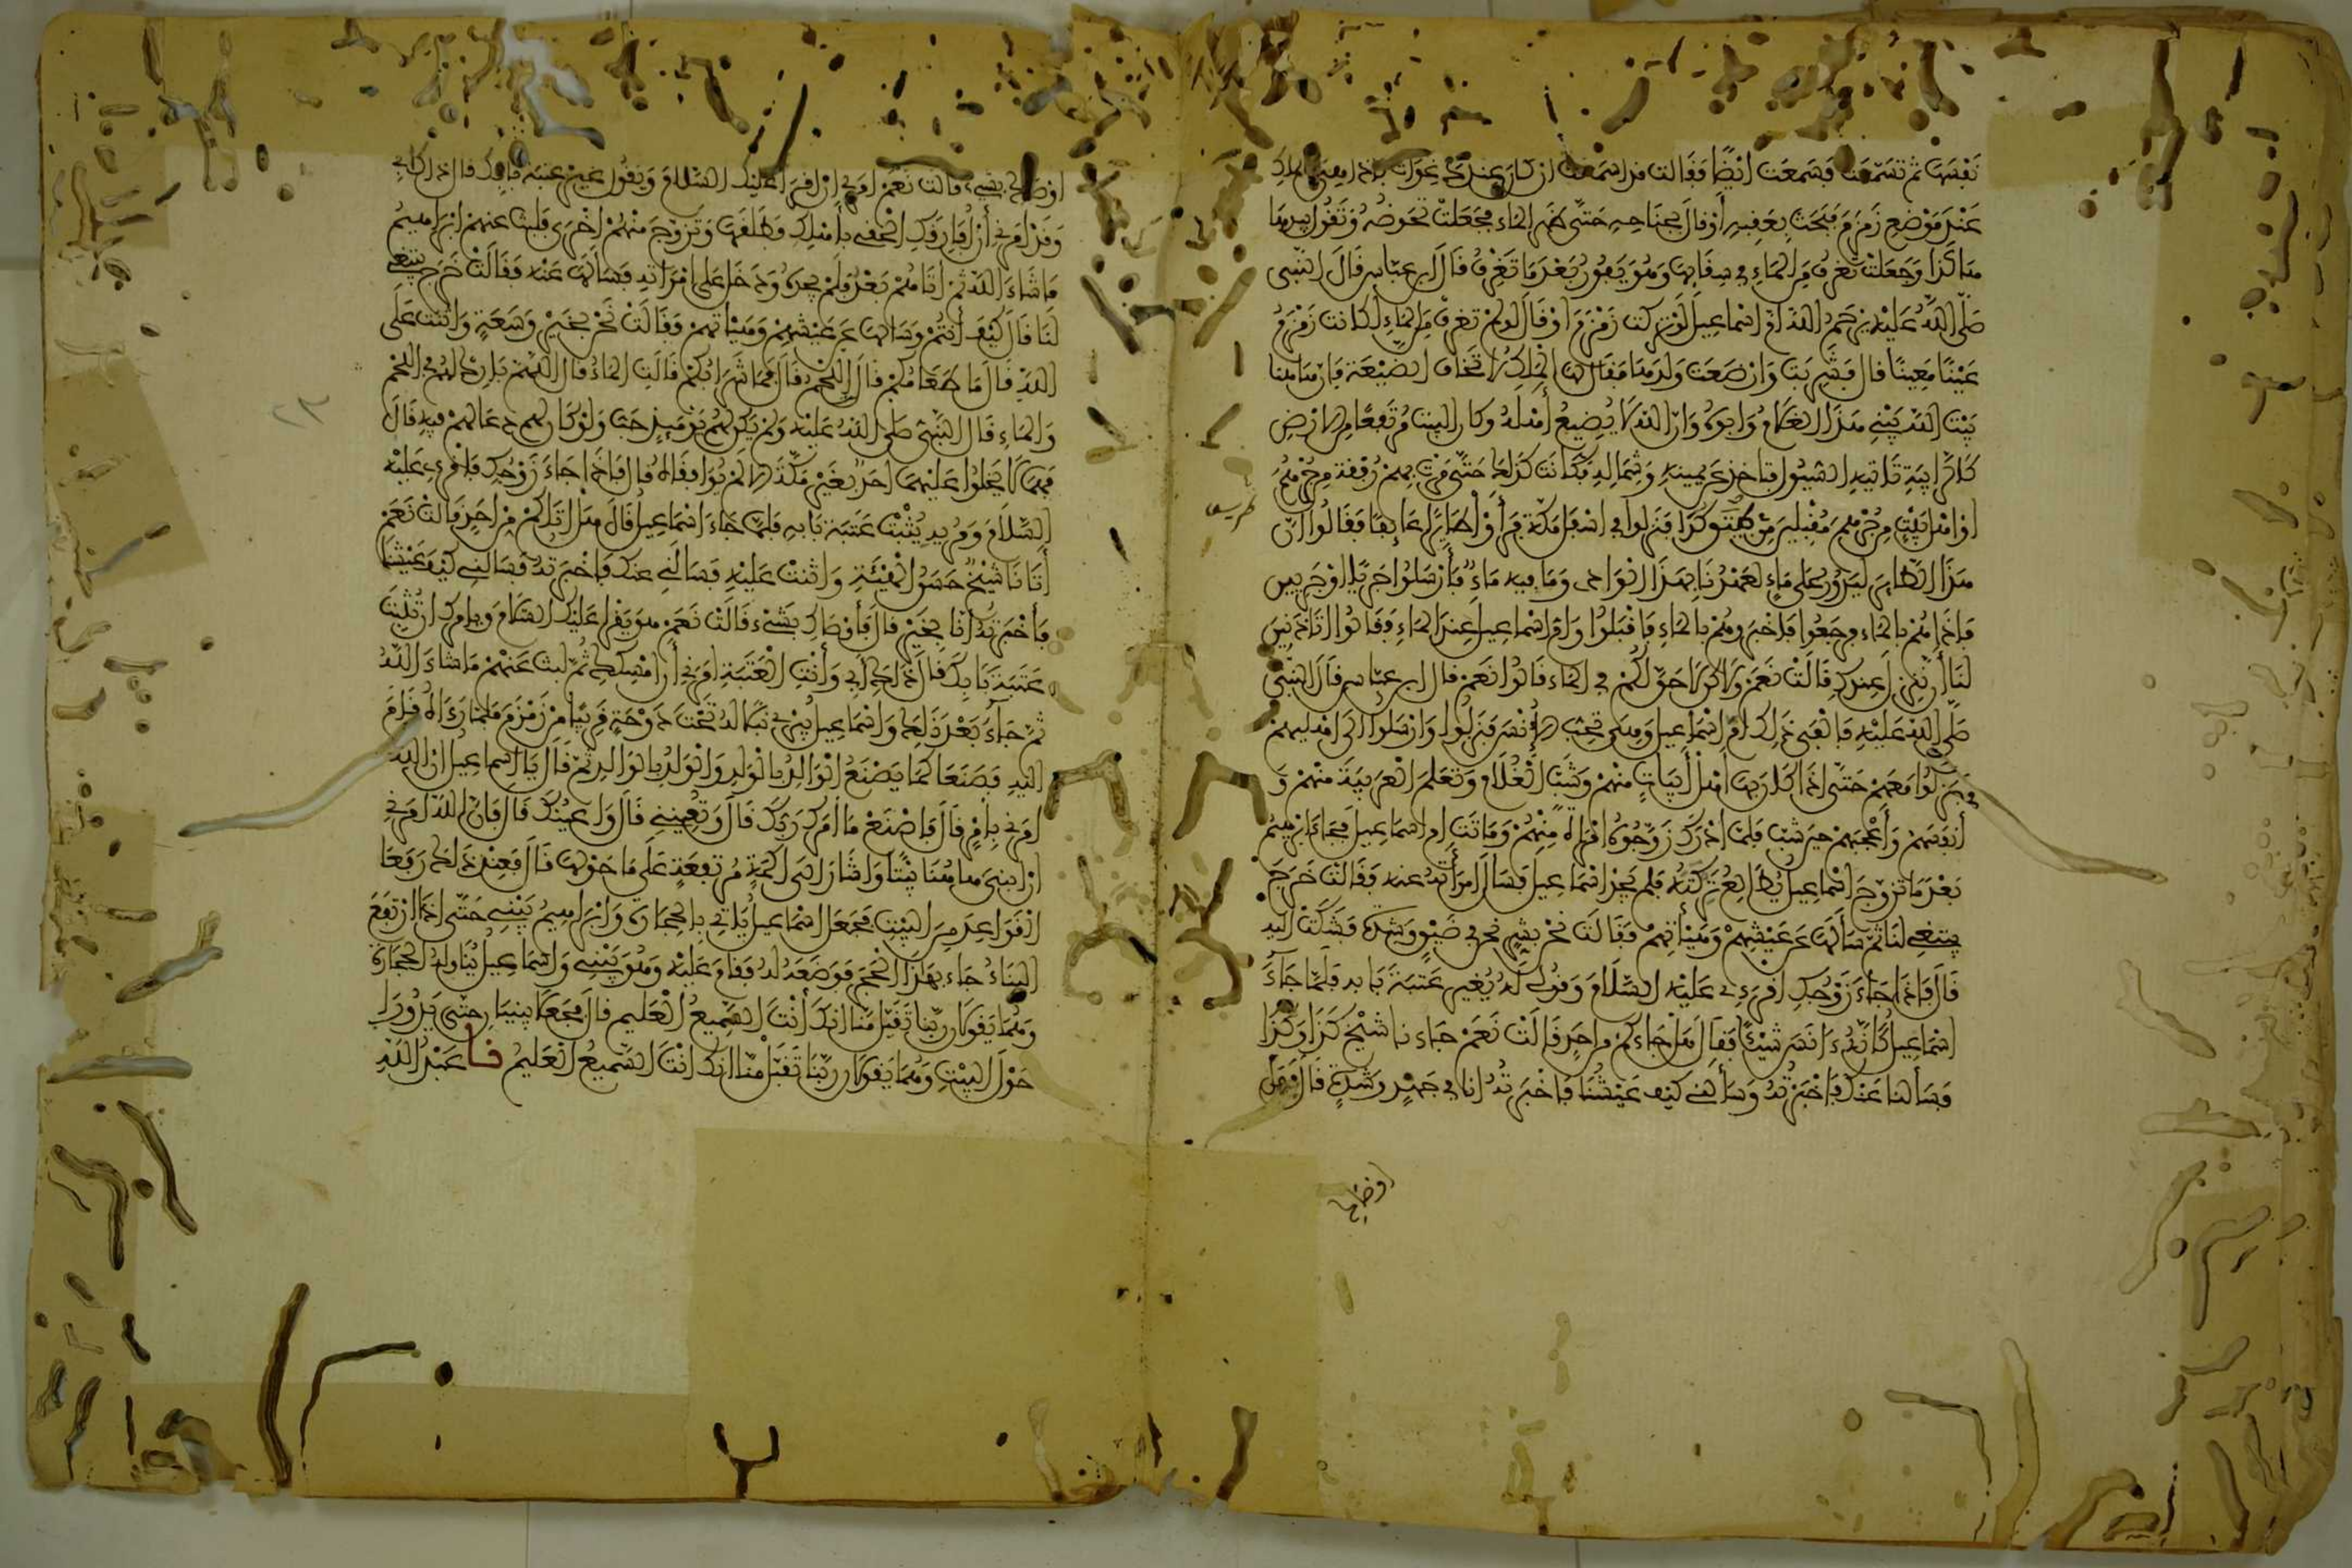 نفسها ثم تسمعت فسمعت ايضًا فقالت قد اسمعت ان كان عندك غوات فاذا هي بالملك
عند موضع زمزم فبحث بعقبه او قال بجناحه حتى ظهر الماء فجعلت تحوضه وتقول بيدها
هاكذا وجعلت تغرف من الماء في سقايها وهو يفور بعد ما تغرف قال ابن عباس قال النبي
صلى الله عليه يرحم الله ام اسماعيل لو تركت زمزم او قال لو لم تغرف من الماء لكانت زمزم
عينًا معينًا قال فشربت وارضعت ولدها فقال لها الملك لا تخافي الضيعة فان هاهنا
بيت الله يبني هذا الغلام وابوه وان الله لا يضيع اهله وكان البيت مرتفعًا من الارض
كالرابية تاتيه السيول فتاخذ عن يمينه وشماله فكانت كذلك حتى مرت بهم رفقة من جرهم
او اهل بيت من جرهم مقبلين من طريق كدا فنزلوا في اسفل مكة فرأوا طايرًا عايفًا فقالوا ان
طريق
هذا الطاير ليدور على ماء لعهدنا بهذا الوادى وما فيه ماء فأرسلوا جريًا او جريين
فاذا هم بالماء فرجعوا فاخبروهم بالماء فاقبلوا وام اسماعيل عند الماء فقالوا اتاذنين
لنا أن ننزل عندك قالت نعم ولاكن لا حق لكم في الماء قالوا نعم قال ابن عباس قال النبي
صلى الله عليه فالفى ذلك ام اسماعيل وهي تحب الانس فنزلوا وارسلوا الى اهليهم
فنزلوا معهم حتى اذا كان بها اهل أبيات منهم وشب الغلام وتعلم العربية منهم و
أنفسهم وأعجبهم حين شب فلما ادرك زوجوه امراة منهم وماتت ام اسماعيل فجاء ابرهيم
بعد ما تزوج اسماعيل يطالع تركته فلم يجد اسماعيل فسأل امرأته عنه فقالت خرج
يبتغي لنا ثم سألها عن عيشهم وهيأتهم فقالت نحن بشر نحن في ضيق وشدة فشكت اليه
قال فاذا جاء زوجك اقرءي عليه السلام وقولي له يغير عتبة بابه فلما جآء
اسماعيل كأنه ءانس شيئًا فقال هل جاءكم من احد قالت نعم جاءنا شيخ كذا وكذا
فسألنا عنك فاخبرته وسألني كيف عيشنا فاخبرته انا في جهد وشدة قال فهل
اوصاك
اوصاك بشيء قالت نعم امرني ان اقرا عليك السلام ويقول غير عتبة بابك قال ذاك ابي
وقد امرني أن افارقك الحقي بأهلك فطلقها وتزوج منهم اخرى فلبث عنهم ابراهيم
ما شاء الله ثم اتاهم بعد فلم يجده ودخل على امراته فسألها عنه فقالت خرج يبتغي
لنا قال كيف أنتم وسالها عن عيشهم وهيأتهم فقالت نحن بخير وسعة واثنت على
الله قال ما طعامكم قال اللحم قال فما شرابكم قالت الماء قال اللهم بارك لهم في اللحم
والماء قال النبي صلى الله عليه ولم يكن لهم يومئذ حب ولو كان لهم دعا لهم فيه قال
فهما لا يخلوا عليهما احد بغير مكة الا لم يوافقاه قال فاذا جاء زوجك فاقرءي عليه
السلام ومريه يثبت عتبة بابه فلما جاء اسماعيل قال هل اتاكم من احد قالت نعم
أتانا شيخ حسن الهيئة واثنت عليه فسالني عنك فاخبرته فسالني كيف عيشنا
فأخبرته أنا بخير قال فأوصاك بشيء قالت نعم هو يقرأ عليك السلام ويامرك ان تثبت
عتبة بابك قال ذاك أبي وأنت العتبة امرني أن امسكك ثم لبث عنهم ما شاء الله
ثم جآء بعد ذلك واسماعيل يبري نبلا له تحت دوحة قريبا من زمزم فلما رءاه قام
اليه فصنعا كما يصنع الوالد بالولد والولد بالوالد ثم قال يا اسماعيل ان الله
امرني بأمر قال فاصنع ما امرك ربك قال وتعينني قال واعينك قال فان الله امرني
ان ابني هاهنا بيتًا واشار الى اكمة مرتفعة على ما حولها قال فعند ذلك رفعا
القواعد من البيت فجعل اسماعيل ياتي بالحجارة وابراهيم يبني حتى اذا ارتفع
البناء جاء بهذا الحجر فوضعه له فقام عليه وهو يبني واسماعيل يناوله الحجارة
وهما يقولان ربنا تقبل منا انك أنت السميع العليم قال فجعلا يبنيان حتى يدورا
حول البيت وهما يقولان ربنا تقبل منا انك انت السميع العليم نا عبد الله